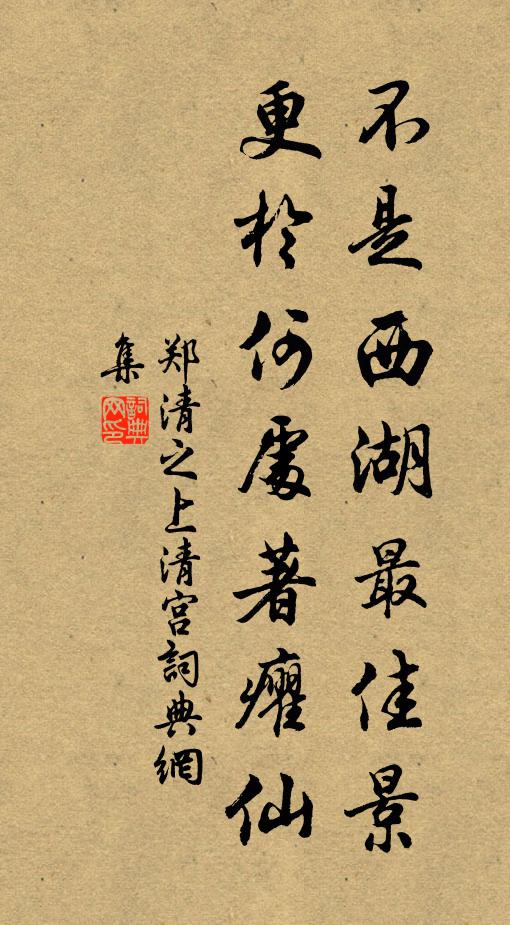 不是西湖最佳景
更於何處著癯仙
郑清之上清宫詞典網
集
詞典網印